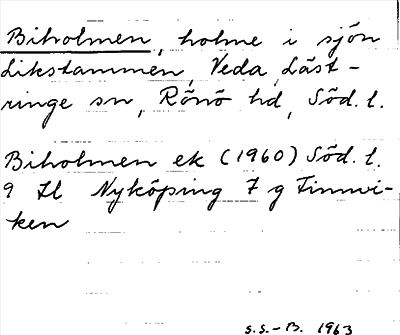 Biholmen, holme i sjön
Likstammen, Veda, Läst-
ringe sn, Rönö hd, Söd. l.
Biholmen ek (1960) Söd. l.
9 Il Nyköping 7 g Finnvi-
ken
S.S.-B. 1963